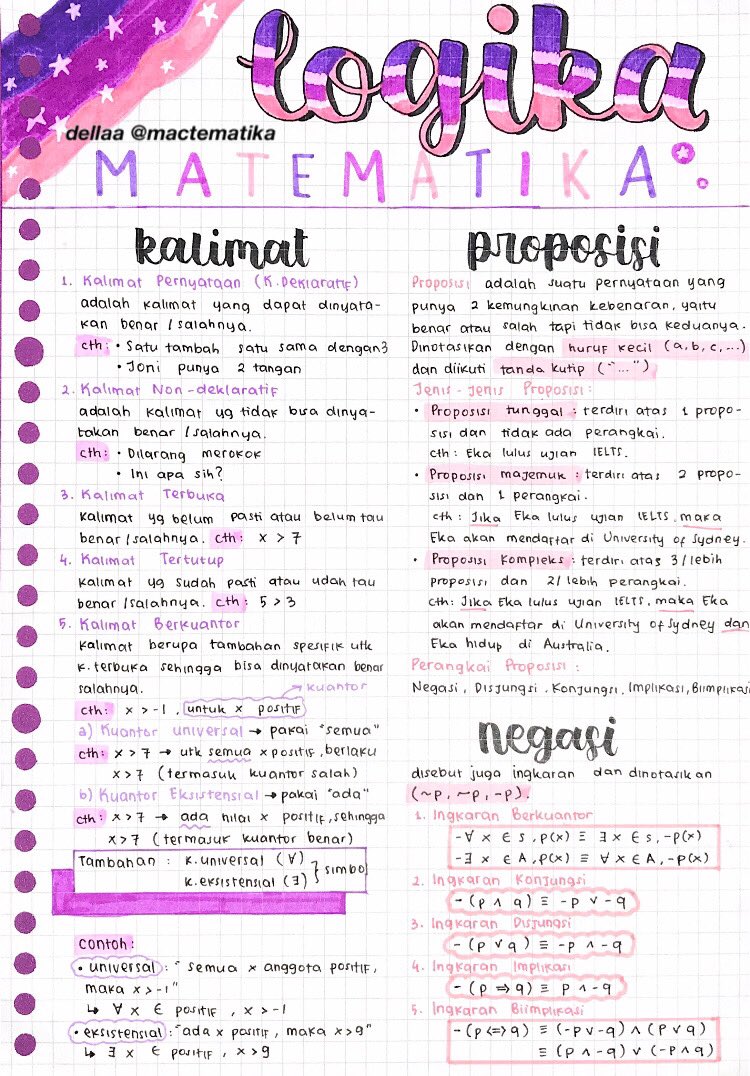 logika
dellaa @mactematika
MATEMATIKA
kalimat
1. Kalimat Pernyataan (K. Deklaratif)
adalah kalimat yang dapat dinyata-
kan benar / salahnya.
cth: • Satu tambah satu sama dengan 3
• Joni punya 2 tangan
2. Kalimat Non-deklaratif
adalah kalimat yg tidak bisa dinya-
takan benar / salahnya.
cth: • Dilarang merokok
• Ini apa sih?
3. Kalimat Terbuka
kalimat yg belum pasti atau belum tau
benar/salahnya. cth: x > 7
4. Kalimat Tertutup
kalimat yg sudah pasti atau udah tau
benar /salahnya. cth: 5 > 3
5. Kalimat Berkuantor
kalimat berupa tambahan spesifik utk
k. terbuka sehingga bisa dinyatakan benar
salahnya.
→ kuantor
cth: x > -1 , untuk x positif
a) Kuantor universal → pakai "semua"
cth: x > 7 → utk semua x positif, berlaku
x > 7 (termasuk kuantor salah)
b) Kuantor Eksistensial → pakai "ada"
cth: x > 7 → ada nilai x positif, sehingga
x > 7 (termasuk kuantor benar)
Tambahan : k. universal (∀)
k. eksistensial (∃) } simbol
contoh:
• universal : " semua x anggota positif,
maka x > -1"
↳ ∀ x ∈ positif , x > -1
• eksistensial : "ada x positif, maka x > 9"
↳ ∃ x ∈ positif , x > 9
proposisi
Proposisi adalah suatu pernyataan yang
punya 2 kemungkinan kebenaran, yaitu
benar atau salah tapi tidak bisa keduanya.
Dinotasikan dengan huruf kecil (a, b, c, ...)
dan diikuti tanda kutip ("...")
Jenis-jenis Proposisi:
• Proposisi tunggal : terdiri atas 1 propo-
sisi dan tidak ada perangkai.
cth: Eka lulus ujian IELTS.
• Proposisi majemuk : terdiri atas 2 propo-
sisi dan 1 perangkai.
cth : Jika Eka lulus ujian IELTS, maka
Eka akan mendaftar di University of Sydney.
• Proposisi Kompleks : terdiri atas 3/lebih
proposisi dan 2/lebih perangkai.
cth: Jika Eka lulus ujian IELTS, maka Eka
akan mendaftar di University of Sydney dan
Eka hidup di Australia.
Perangkai Proposisi :
Negasi, Disjungsi, Konjungsi, Implikasi, Biimplikasi
negasi
disebut juga ingkaran dan dinotasikan
(~p, ~p, -p).
1. Ingkaran Berkuantor
-∀ x ∈ s, p(x) ≡ ∃ x ∈ s, -p(x)
-∃ x ∈ A, p(x) ≡ ∀ x ∈ A, -p(x)
2. Ingkaran Konjungsi
- (p ∧ q) ≡ -p ∨ -q
3. Ingkaran Disjungsi
- (p ∨ q) ≡ -p ∧ -q
4. Ingkaran Implikasi
- (p ⇒ q) ≡ p ∧ -q
5. Ingkaran Biimplikasi
- (p <=> q) ≡ (-p ∨ -q) ∧ (p ∨ q)
≡ (p ∧ -q) ∨ (-p ∧ q)